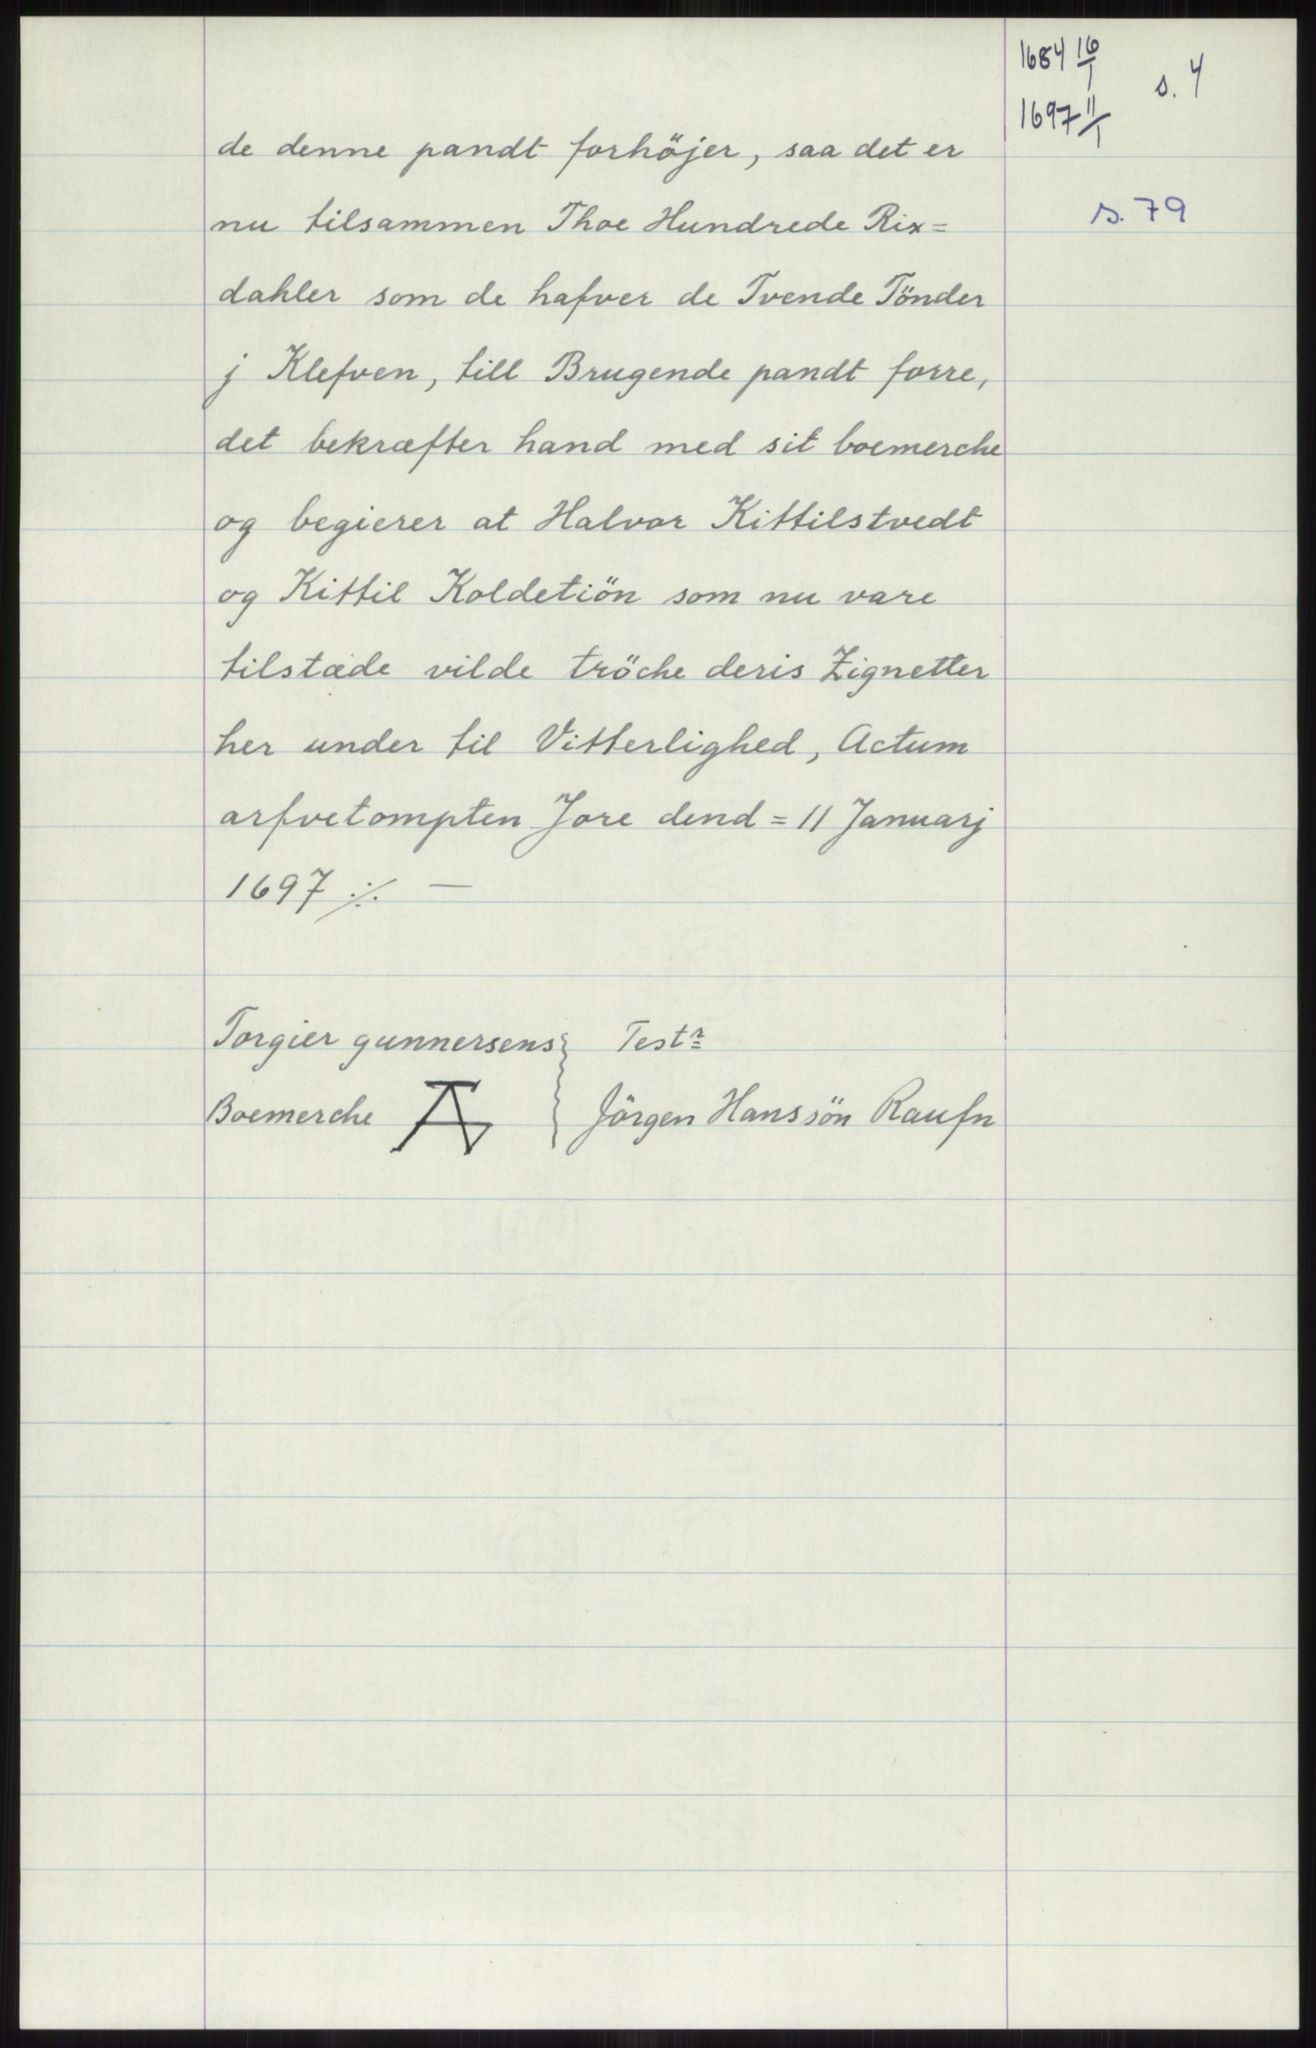 1684 16/1
s. 4
1697 11/1
s. 79
de denne pandt forhöjer, saa det er
nu tilsammen Thoe Hundrede Rix=
dahler som de hafver de Tvende Tönder
j Klefven, till Brugende pandt forre,
det bekræfter hand med sit boemerche
og begierer at Halvor Kittilstvedt
og Kittil Koldetiön som nu vare
tilstæde vilde tröche deris Zignetter
her under til Vitterlighed, Actum
arfvetompten Jore dend = 11 Januarj
1697 ·/· —
Torgier gunnersens
Boemerche
Testr
Jörgen Hanssön Raufn